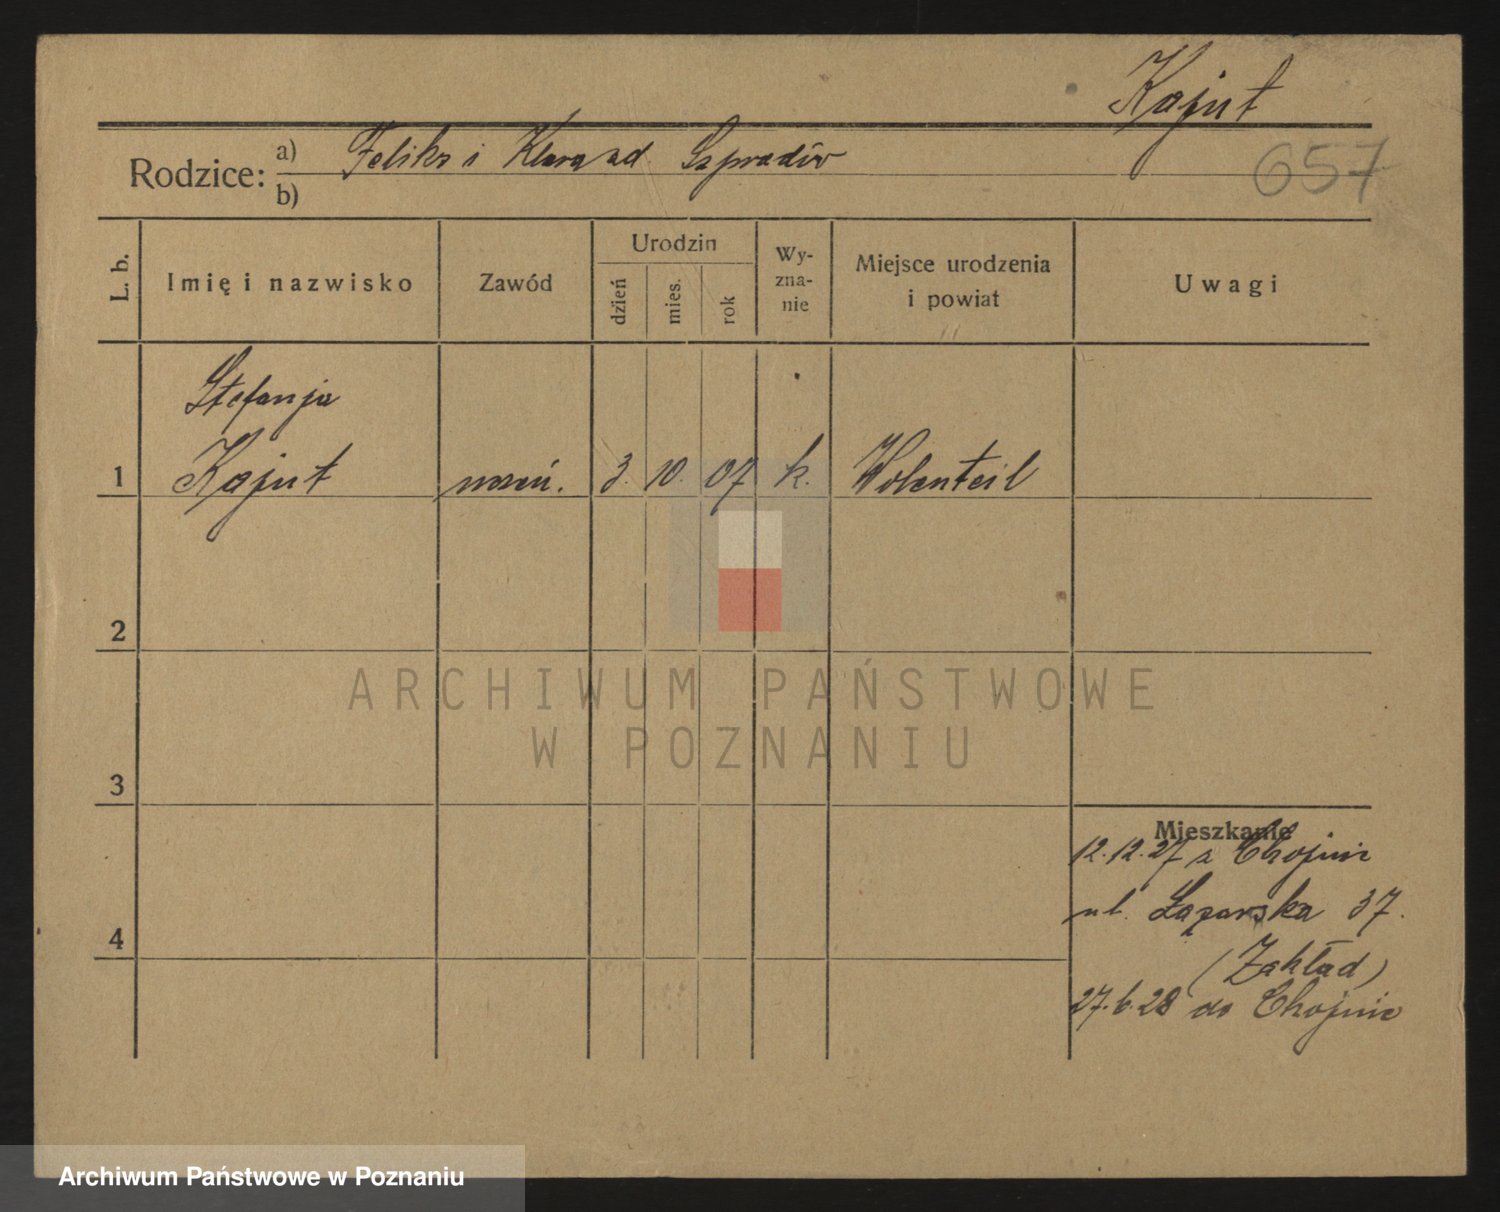 Kajut
Rodzice: a) Feliks i Klara zd. Szpradów
b)
657
L. b.
Imię i nazwisko
Zawód
Urodzin
dzień
mies.
rok
Wy-
zna-
nie
Miejsce urodzenia
i powiat
Uwagi
Stefanja
1 Kajut uczeń. 3. 10. 07 k. Wolenteil
2
3
4
Mieszkanie
12.12.27 z Chojnic
ul. Łazarska 37.
(Zakład)
27.6.28 do Chojnic
ARCHIWUM PAŃSTWOWE
W POZNANIU
Archiwum Państwowe w Poznaniu